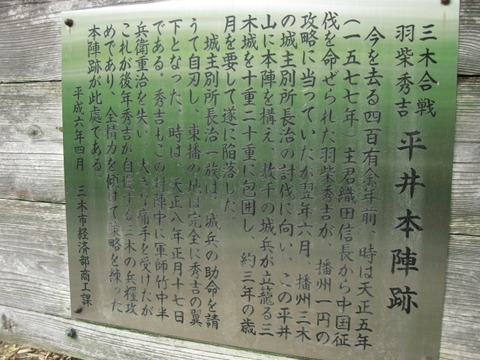 三木合戦
羽柴秀吉 平井本陣跡
今を去る四百有余年前、時は天正五年
(一五七七年)主君織田信長から中国征
伐を命ぜられた羽柴秀吉が 播州一円の
攻略に当っていたが翌年六月 播州三木
の城主別所長治の討伐に向い、この平井
山に本陣を構え、敵手の城兵が立籠る三
木城を十重二十重に包囲し 約三年の歳
月を要して遂に陥落した。
城主別所長治一族は、城兵の助命を請
うて自刃し、東播の地は完全に秀吉の翼
下となった、時は、天正八年正月十七日
である。秀吉もこの対陣中に軍師竹中半
兵衛重治を失い 大きな痛手を受けたが
これが後年秀吉が自任する三木の兵糧攻
めであり、全精力を傾けて策略を練った
本陣跡が此處である
平成六年四月 三木市経済部商工課